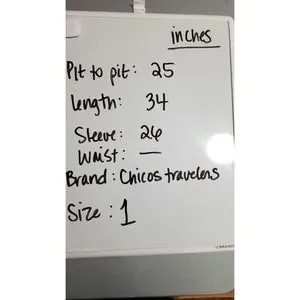 inches
Pit to pit: 25
Length: 34
Sleeve: 26
Waist: —
Brand: Chicos travelers
Size: 1